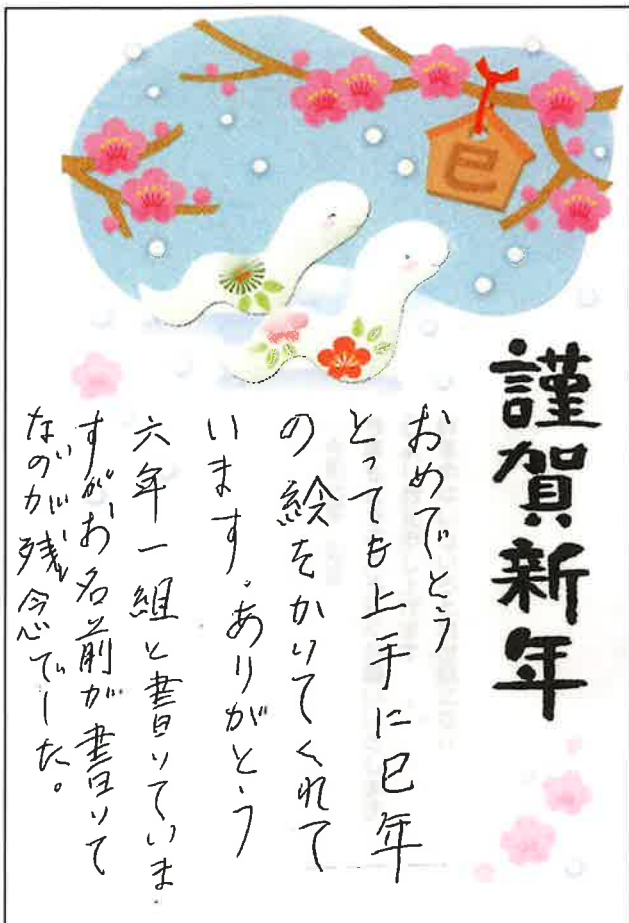 巳
謹賀新年
おめでとう
とっても上手に巳年
の絵をかいてくれて
います。ありがとう
六年一組と書いていま
すが、お名前が書いて
ないのが残念でした。